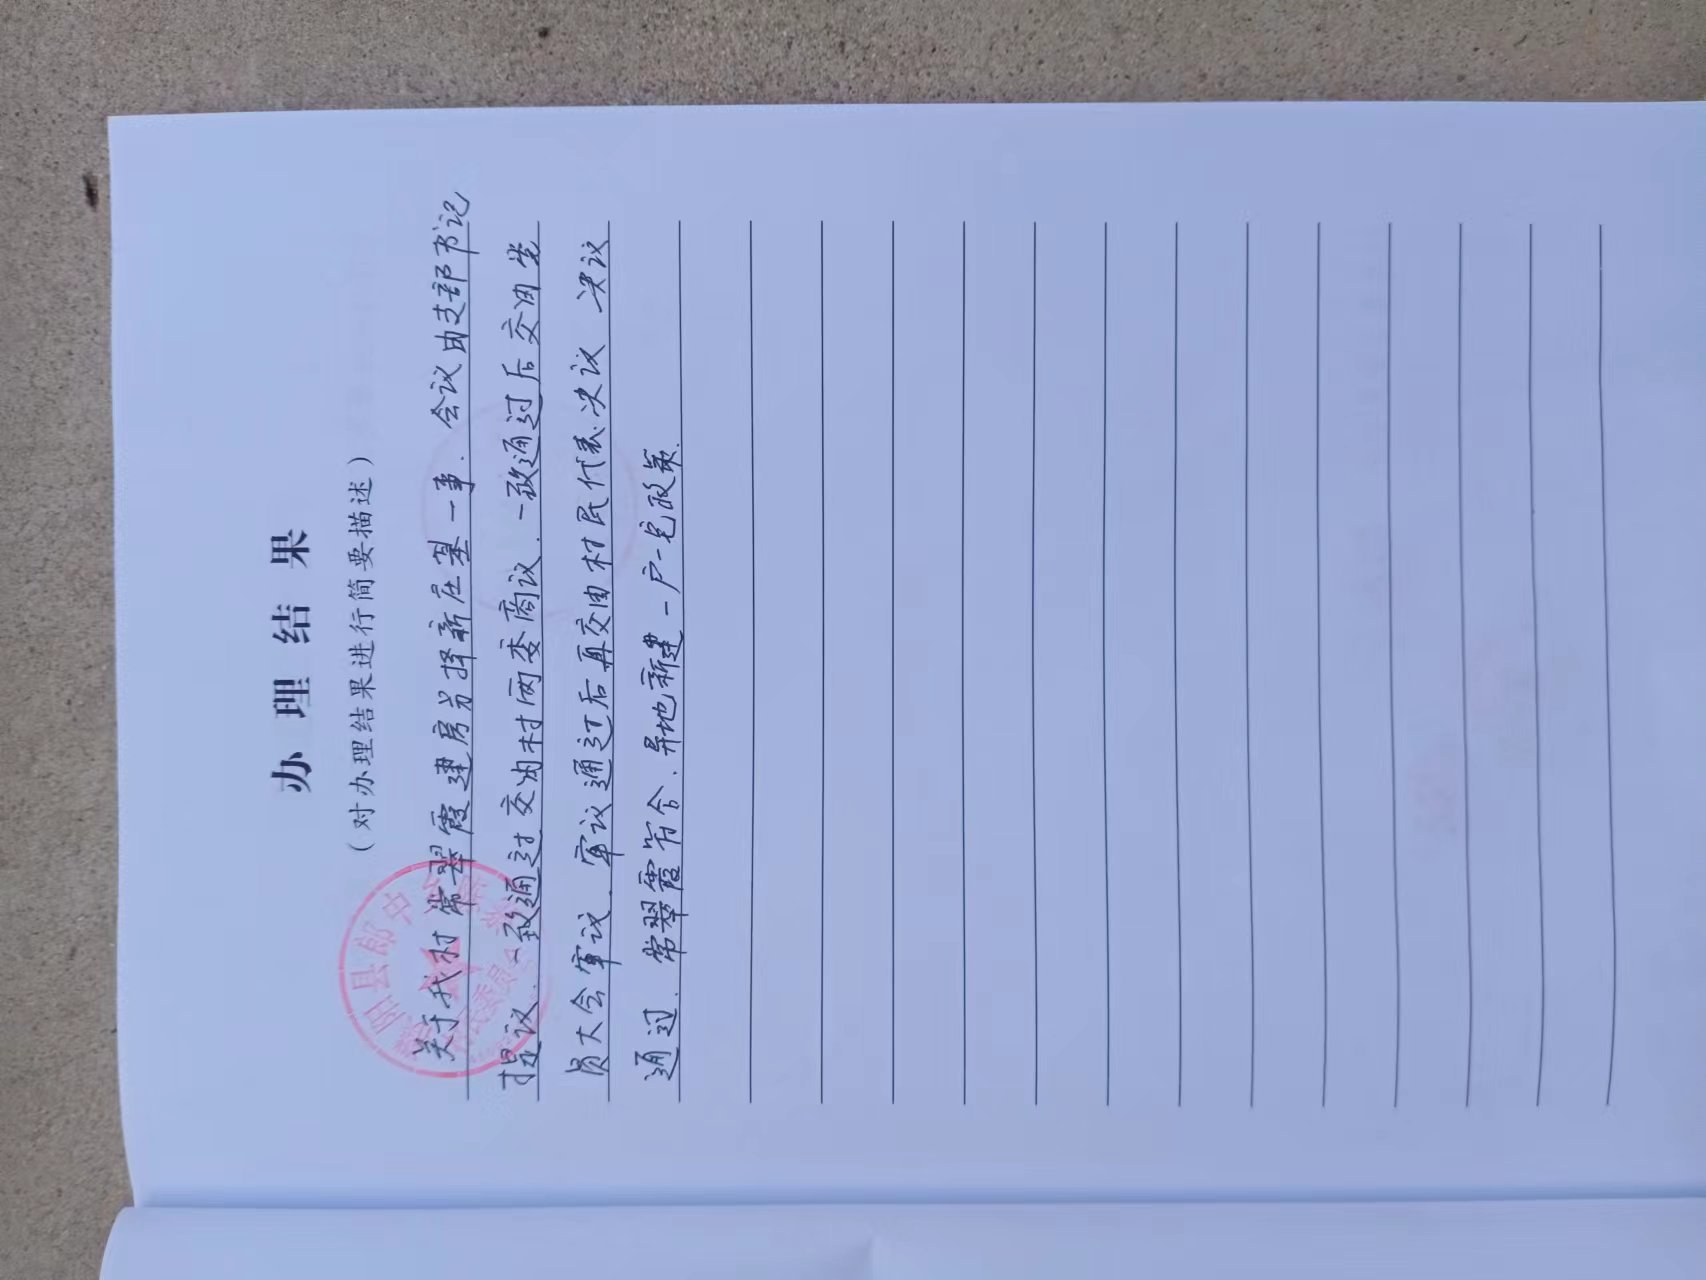 办理结果
(对办理结果进行简要描述)
关于我村常翠霞建房另择新庄基一事.会议由支部书记
提议.一致通过交由村两委商议.一致通过后交由党
员大会审议.审议通过后再交由村民代表决议 决议
通过.常翠霞符合.异地新建一户一宅政策.
县郎中
委员